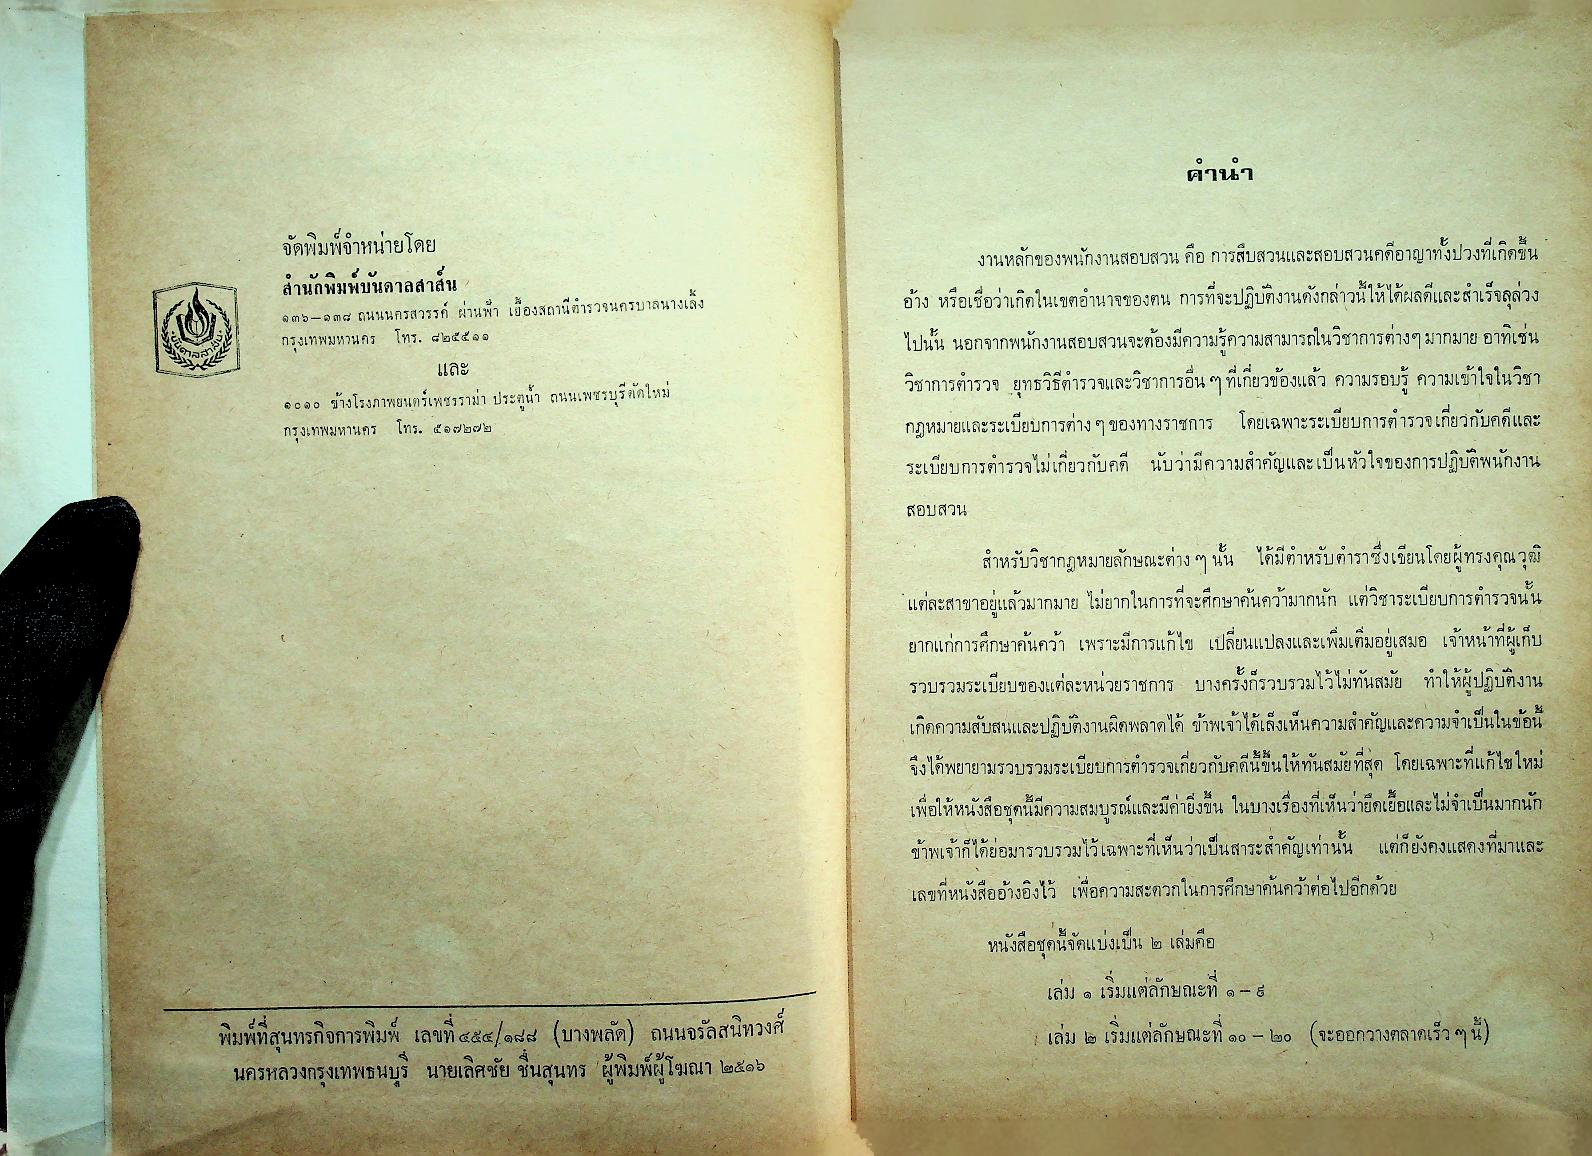 จัดพิมพ์จำหน่ายโดย
สำนักพิมพ์บันดาลสาส์น
๑๓๖–๑๓๘ ถนนนครสวรรค์ ผ่านฟ้า เยื้องสถานีตำรวจนครบาลนางเลิ้ง
กรุงเทพมหานคร โทร. ๘๒๕๕๑๑
และ
๑๐๑๐ ข้างโรงภาพยนตร์เพชรรามา ประตูน้ำ ถนนเพชรบุรีตัดใหม่
กรุงเทพมหานคร โทร. ๕๑๗๒๗๒
บันดาลสาส์น
พิมพ์ที่สุนทรกิจการพิมพ์ เลขที่ ๔๕๔/๑๘๘ (บางพลัด) ถนนจรัลสนิทวงศ์
นครหลวงกรุงเทพธนบุรี นายเลิศชัย ชื่นสุนทร ผู้พิมพ์ผู้โฆณา ๒๕๑๖
คำนำ
งานหลักของพนักงานสอบสวน คือ การสืบสวนและสอบสวนคดีอาญาทั้งปวงที่เกิดขึ้น
อ้าง หรือเชื่อว่าเกิดในเขตอำนาจของตน การที่จะปฏิบัติงานดังกล่าวนี้ให้ได้ผลดีและสำเร็จลุล่วง
ไปนั้น นอกจากพนักงานสอบสวนจะต้องมีความรู้ความสามารถในวิชาการต่างๆ มากมาย อาทิเช่น
วิชาการตำรวจ ยุทธวิธีตำรวจและวิชาการอื่น ๆ ที่เกี่ยวข้องแล้ว ความรอบรู้ ความเข้าใจในวิชา
กฎหมายและระเบียบการต่าง ๆ ของทางราชการ โดยเฉพาะระเบียบการตำรวจเกี่ยวกับคดีและ
ระเบียบการตำรวจไม่เกี่ยวกับคดี นับว่ามีความสำคัญและเป็นหัวใจของการปฏิบัติพนักงาน
สอบสวน
สำหรับวิชากฎหมายลักษณะต่าง ๆ นั้น ได้มีตำหรับตำราซึ่งเขียนโดยผู้ทรงคุณวุฒิ
แต่ละสาขาอยู่แล้วมากมาย ไม่ยากในการที่จะศึกษาค้นคว้ามากนัก แต่วิชาระเบียบการตำรวจนั้น
ยากแก่การศึกษาค้นคว้า เพราะมีการแก้ไข เปลี่ยนแปลงและเพิ่มเติมอยู่เสมอ เจ้าหน้าที่ผู้เก็บ
รวบรวมระเบียบของแต่ละหน่วยราชการ บางครั้งก็รวบรวมไว้ไม่ทันสมัย ทำให้ผู้ปฏิบัติงาน
เกิดความสับสนและปฏิบัติงานผิดพลาดได้ ข้าพเจ้าได้เล็งเห็นความสำคัญและความจำเป็นในข้อนี้
จึงได้พยายามรวบรวมระเบียบการตำรวจเกี่ยวกับคดีนี้ขึ้นให้ทันสมัยที่สุด โดยเฉพาะที่แก้ไขใหม่
เพื่อให้หนังสือชุดนี้มีความสมบูรณ์และมีค่ายิ่งขึ้น ในบางเรื่องที่เห็นว่ายืดเยื้อและไม่จำเป็นมากนัก
ข้าพเจ้าก็ได้ย่อมารวบรวมไว้เฉพาะที่เห็นว่าเป็นสาระสำคัญเท่านั้น แต่ก็ยังคงแสดงที่มาและ
เลขที่หนังสืออ้างอิงไว้ เพื่อความสะดวกในการศึกษาค้นคว้าต่อไปอีกด้วย
หนังสือชุดนี้จัดแบ่งเป็น ๒ เล่มคือ
เล่ม ๑ เริ่มแต่ลักษณะที่ ๑ – ๙
เล่ม ๒ เริ่มแต่ลักษณะที่ ๑๐ – ๒๐ (จะออกวางตลาดเร็ว ๆ นี้)